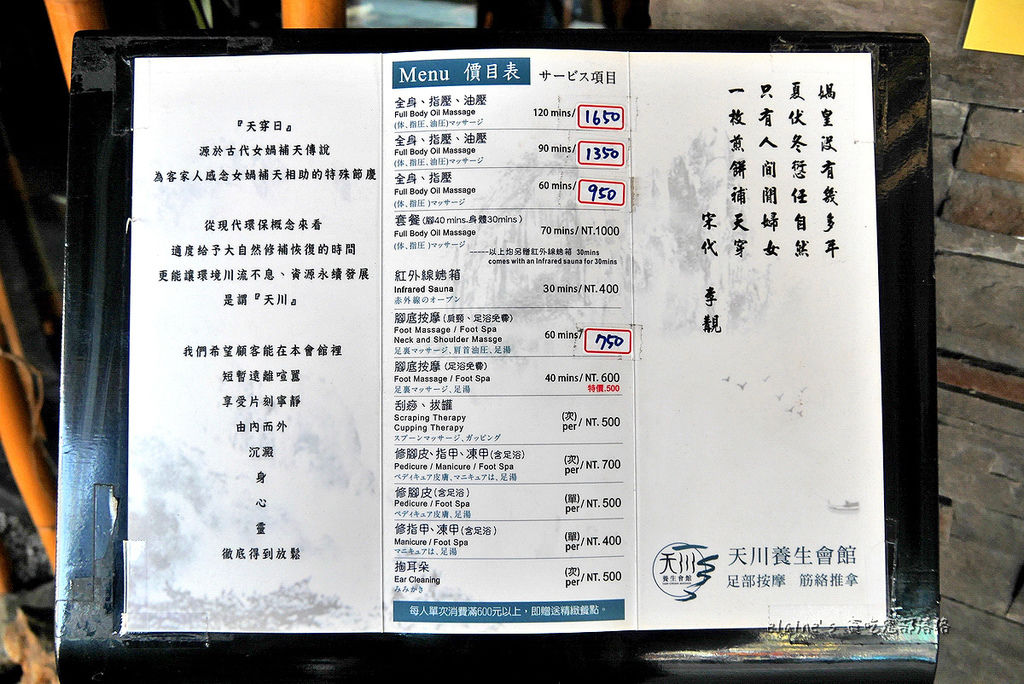 『天穿日』
源於古代女媧補天傳說
為客家人感念女媧補天相助的特殊節慶
從現代環保概念來看
適度給予大自然修補恢復的時間
更能讓環境川流不息、資源永續發展
是謂『天川』
我們希望顧客能在本會館裡
短暫遠離喧囂
享受片刻寧靜
由內而外
沉澱
身
心
靈
徹底得到放鬆
Menu 價目表 サービス項目
全身、指壓、油壓
Full Body Oil Massage 120 mins/ 1650
(体、指圧、油圧)マッサージ
全身、指壓、油壓
Full Body Oil Massage 90 mins/ 1350
(体、指圧、油圧)マッサージ
全身、指壓
Full Body Oil Massage 60 mins/ 950
(体、指圧 )マッサージ
套餐(腳40 mins.身體30mins)
Full Body Oil Massage 70 mins/ NT.1000
(体、指圧 )マッサージ
-----以上均另贈紅外線烤箱 30mins
comes with an Infrared sauna for 30mins
紅外線烤箱
Infrared Sauna 30 mins/ NT.400
赤外線のオーブン
腳底按摩(肩頸、足浴免費)
Foot Massage / Foot Spa 60 mins/ 750
Neck and Shoulder Massge
足裏マッサージ、肩首油圧、足湯
腳底按摩(足浴免費)
Foot Massage / Foot Spa 40 mins/ NT.600
足裏マッサージ、足湯 特價.500
刮痧、拔罐
Scraping Therapy (次) per / NT. 500
Cupping Therapy
スプーンマッサージ、ガッピング
修腳皮、指甲、凍甲(含足浴)
Pedicure / Manicure / Foot Spa (次) per / NT. 700
ペディキュア皮膚、マニキュアは、足湯
修腳皮(含足浴)
Pedicure / Foot Spa (單) per / NT. 500
ペディキュア皮膚、足湯
修指甲、凍甲(含足浴)
Manicure / Foot Spa (單) per / NT. 400
マニキュアは、足湯
掏耳朵
Ear Cleaning (次) per / NT. 500
みみかき
每人單次消費滿600元以上，即贈送精緻餐點。
媧皇沒有幾多年
夏伏冬愆任自然
只有人間閒婦女
一枚煎餅補天穿
宋代 李觀
天川
養生會館
天川養生會館
足部按摩 筋絡推拿